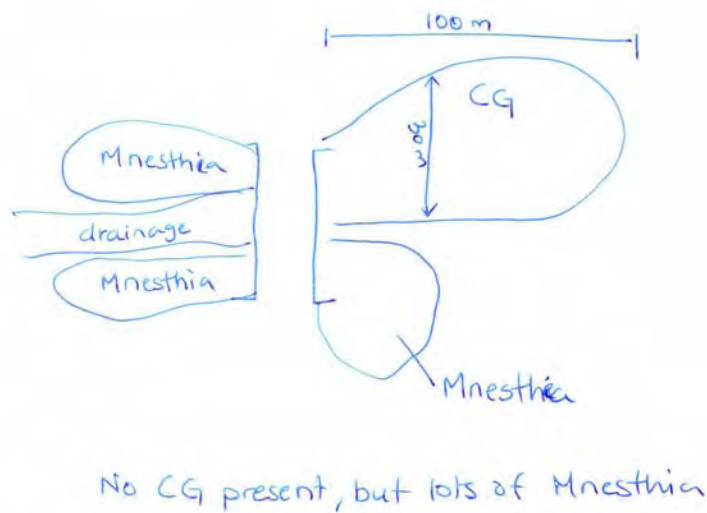 100m
CG
Mnesthia
drainage
Mnesthia
Mnesthia
No CG present, but lots of Mnesthia